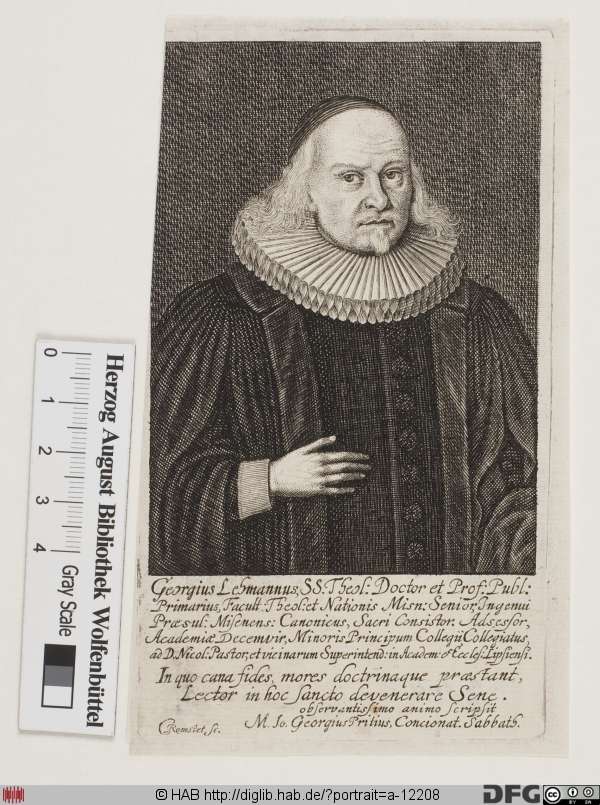 Georgius Lehmannus, SS: Theol: Doctor et Prof: Publ:
Primarius, Facult: Theol: et Nationis Misn: Senior, Ingenui
Præsul: Misenens: Canonicus, Sacri Consistor. Adsessor,
Academiæ Decemvir, Minoris Principum Collegii Collegiatus,
ad D. Nicol: Pastor, et vicinarum Superintend: in Academ: & Eccles. Lipsiensi.
In quo cana fides, mores doctrinaque præstant,
Lector in hoc sancto devenerare Sene.
observantissimo animo scripsit
M. Io. Georgius Pritius, Concionat. Sabbath.
CRomstet, sc.
Herzog August Bibliothek Wolfenbüttel
0
1
2
3
4
Gray Scale
© HAB http://diglib.hab.de/?portrait=a-12208
DFG
cc
BY SA